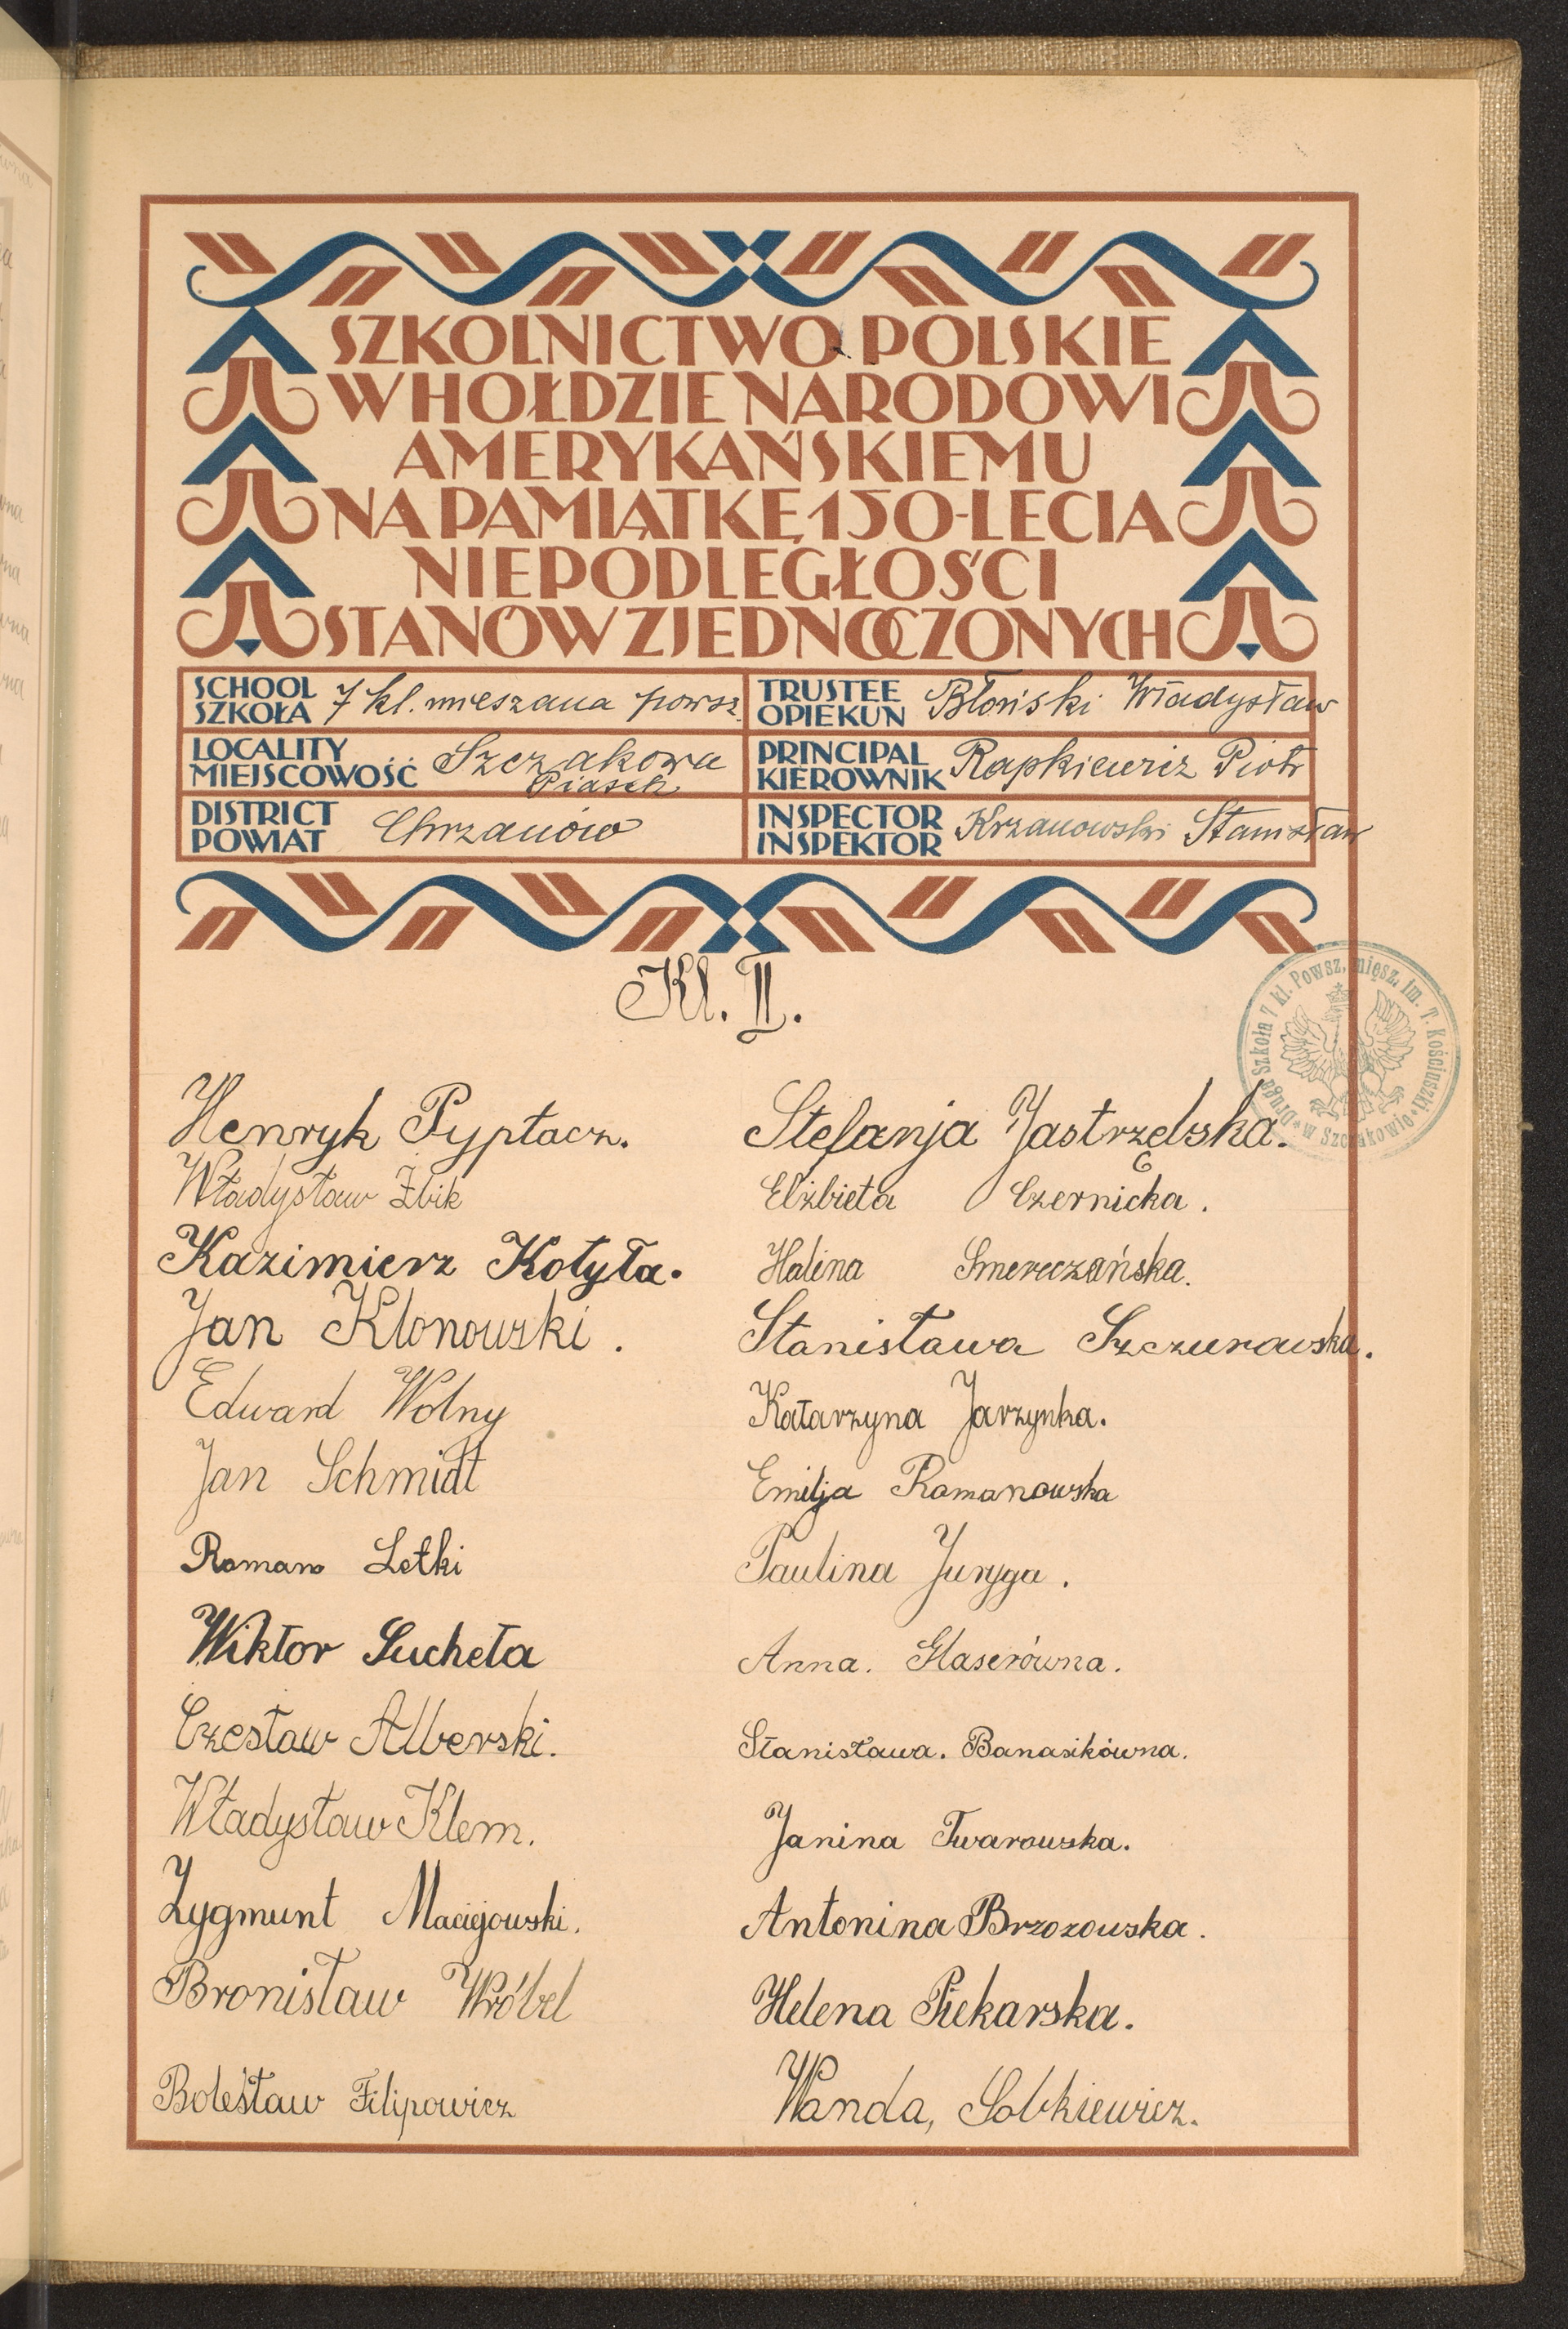 SZKOLNICTWO POLSKIE
W HOŁDZIE NARODOWI
AMERYKAŃSKIEMU
NA PAMIĄTKĘ 150-LECIA
NIEPODLEGŁOŚCI
STANÓW ZJEDNOCZONYCH
SCHOOL SZKOŁA 7 kl. mieszana powsz.
TRUSTEE OPIEKUN Błoński Władysław
LOCALITY MIEJSCOWOŚĆ Szczakowa Piasek
PRINCIPAL KIEROWNIK Rapkiewicz Piotr
DISTRICT POWIAT Chrzanów
INSPECTOR INSPEKTOR Krzanowski Stanisław
Druga Szkoła 7 kl. Powsz. mięsz. im. T. Kościuszki w Szczakowie
Kl. II.
Henryk Pyptacz.
Władysław Żbik
Kazimierz Kotyła.
Jan Klonowski.
Edward Wolny
Jan Schmidt
Roman Letki
Wiktor Sucheta
Czesław Alberski.
Władysław Klem.
Zygmunt Maciejowski.
Bronisław Wróbel
Bolesław Filipowicz
Stefanja Jastrzębska.
Elżbieta Czernicka.
Halina Smereczańska.
Stanisława Szczurowska.
Katarzyna Jarzynka.
Emilja Romanowska
Paulina Juryga.
Anna. Glaserówna.
Stanisława. Banasikówna.
Janina Twarowska.
Antonina Brzozowska.
Helena Piekarska.
Wanda, Sobkiewicz.